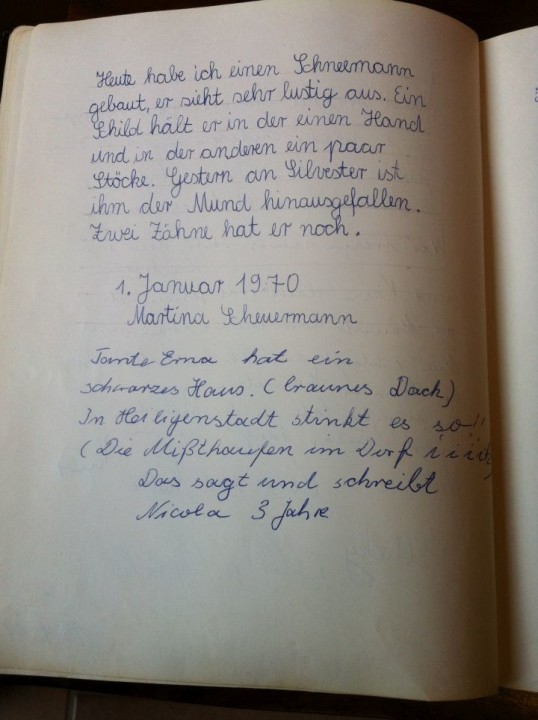 Heute habe ich einen Schneemann
gebaut, er sieht sehr lustig aus. Ein
Schild hält er in der einen Hand
und in der anderen ein paar
Stöcke. Gestern an Silvester ist
ihm der Mund hinausgefallen.
Zwei Zähne hat er noch.
1. Januar 1970
Martina Scheuermann
Tante Erna hat ein
schwarzes Haus. (braunes Dach)
In Heiligenstadt stinkt es so!!
(Die Mißthaufen im Dorf
Das sagt und schreibt
Nicola 3 Jahre